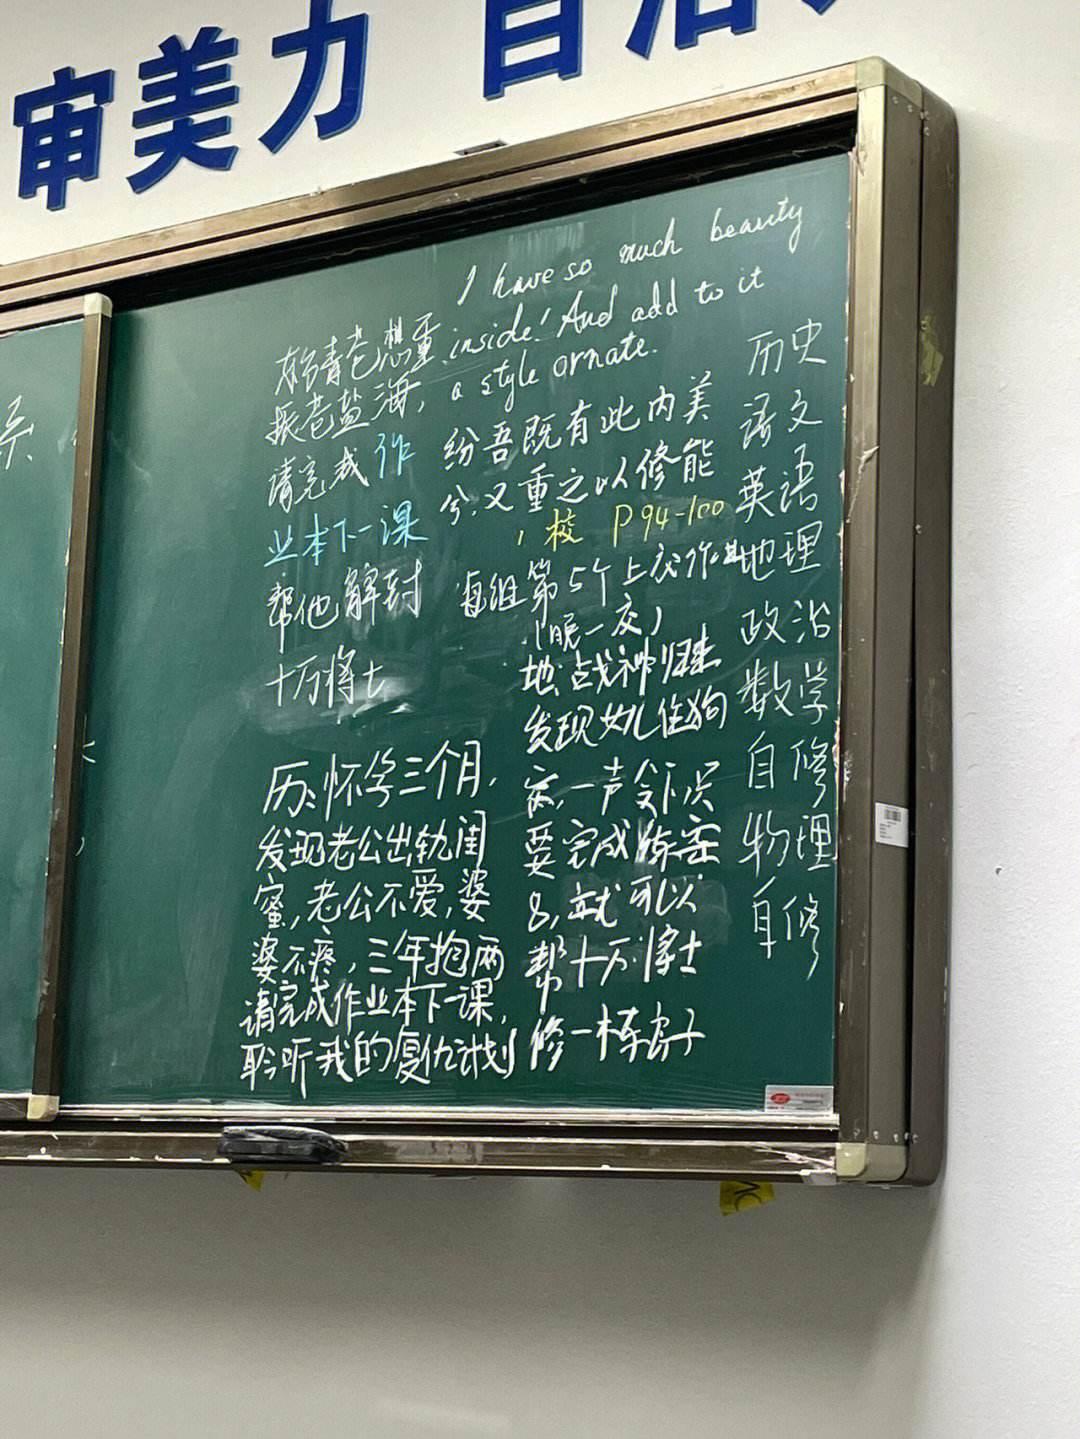 审美力 自治
I have so much beauty
inside! And add to it
a style ornate.
老想重
振老盐海，
请完我作
业本下一课
帮他解封
十万将士
纷吾既有此内美
兮，又重之以修能
，校 P94-100
每组第5个上交作业
（晚一交）
地：战神归来
发现女儿住狗
窝，一声令下只
要完成练案
8，就可以
帮十万将士
修一栋房子
历：怀孕三个月，
发现老公出轨闺
蜜，老公不爱，婆
婆不疼，三年抱两
请完成作业本下一课，
聆听我的复仇计划
历史
语文
英语
地理
政治
数学
自修
物理
自修